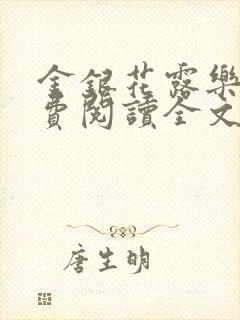 金銀花露樂
費閱讀全文
唐生明